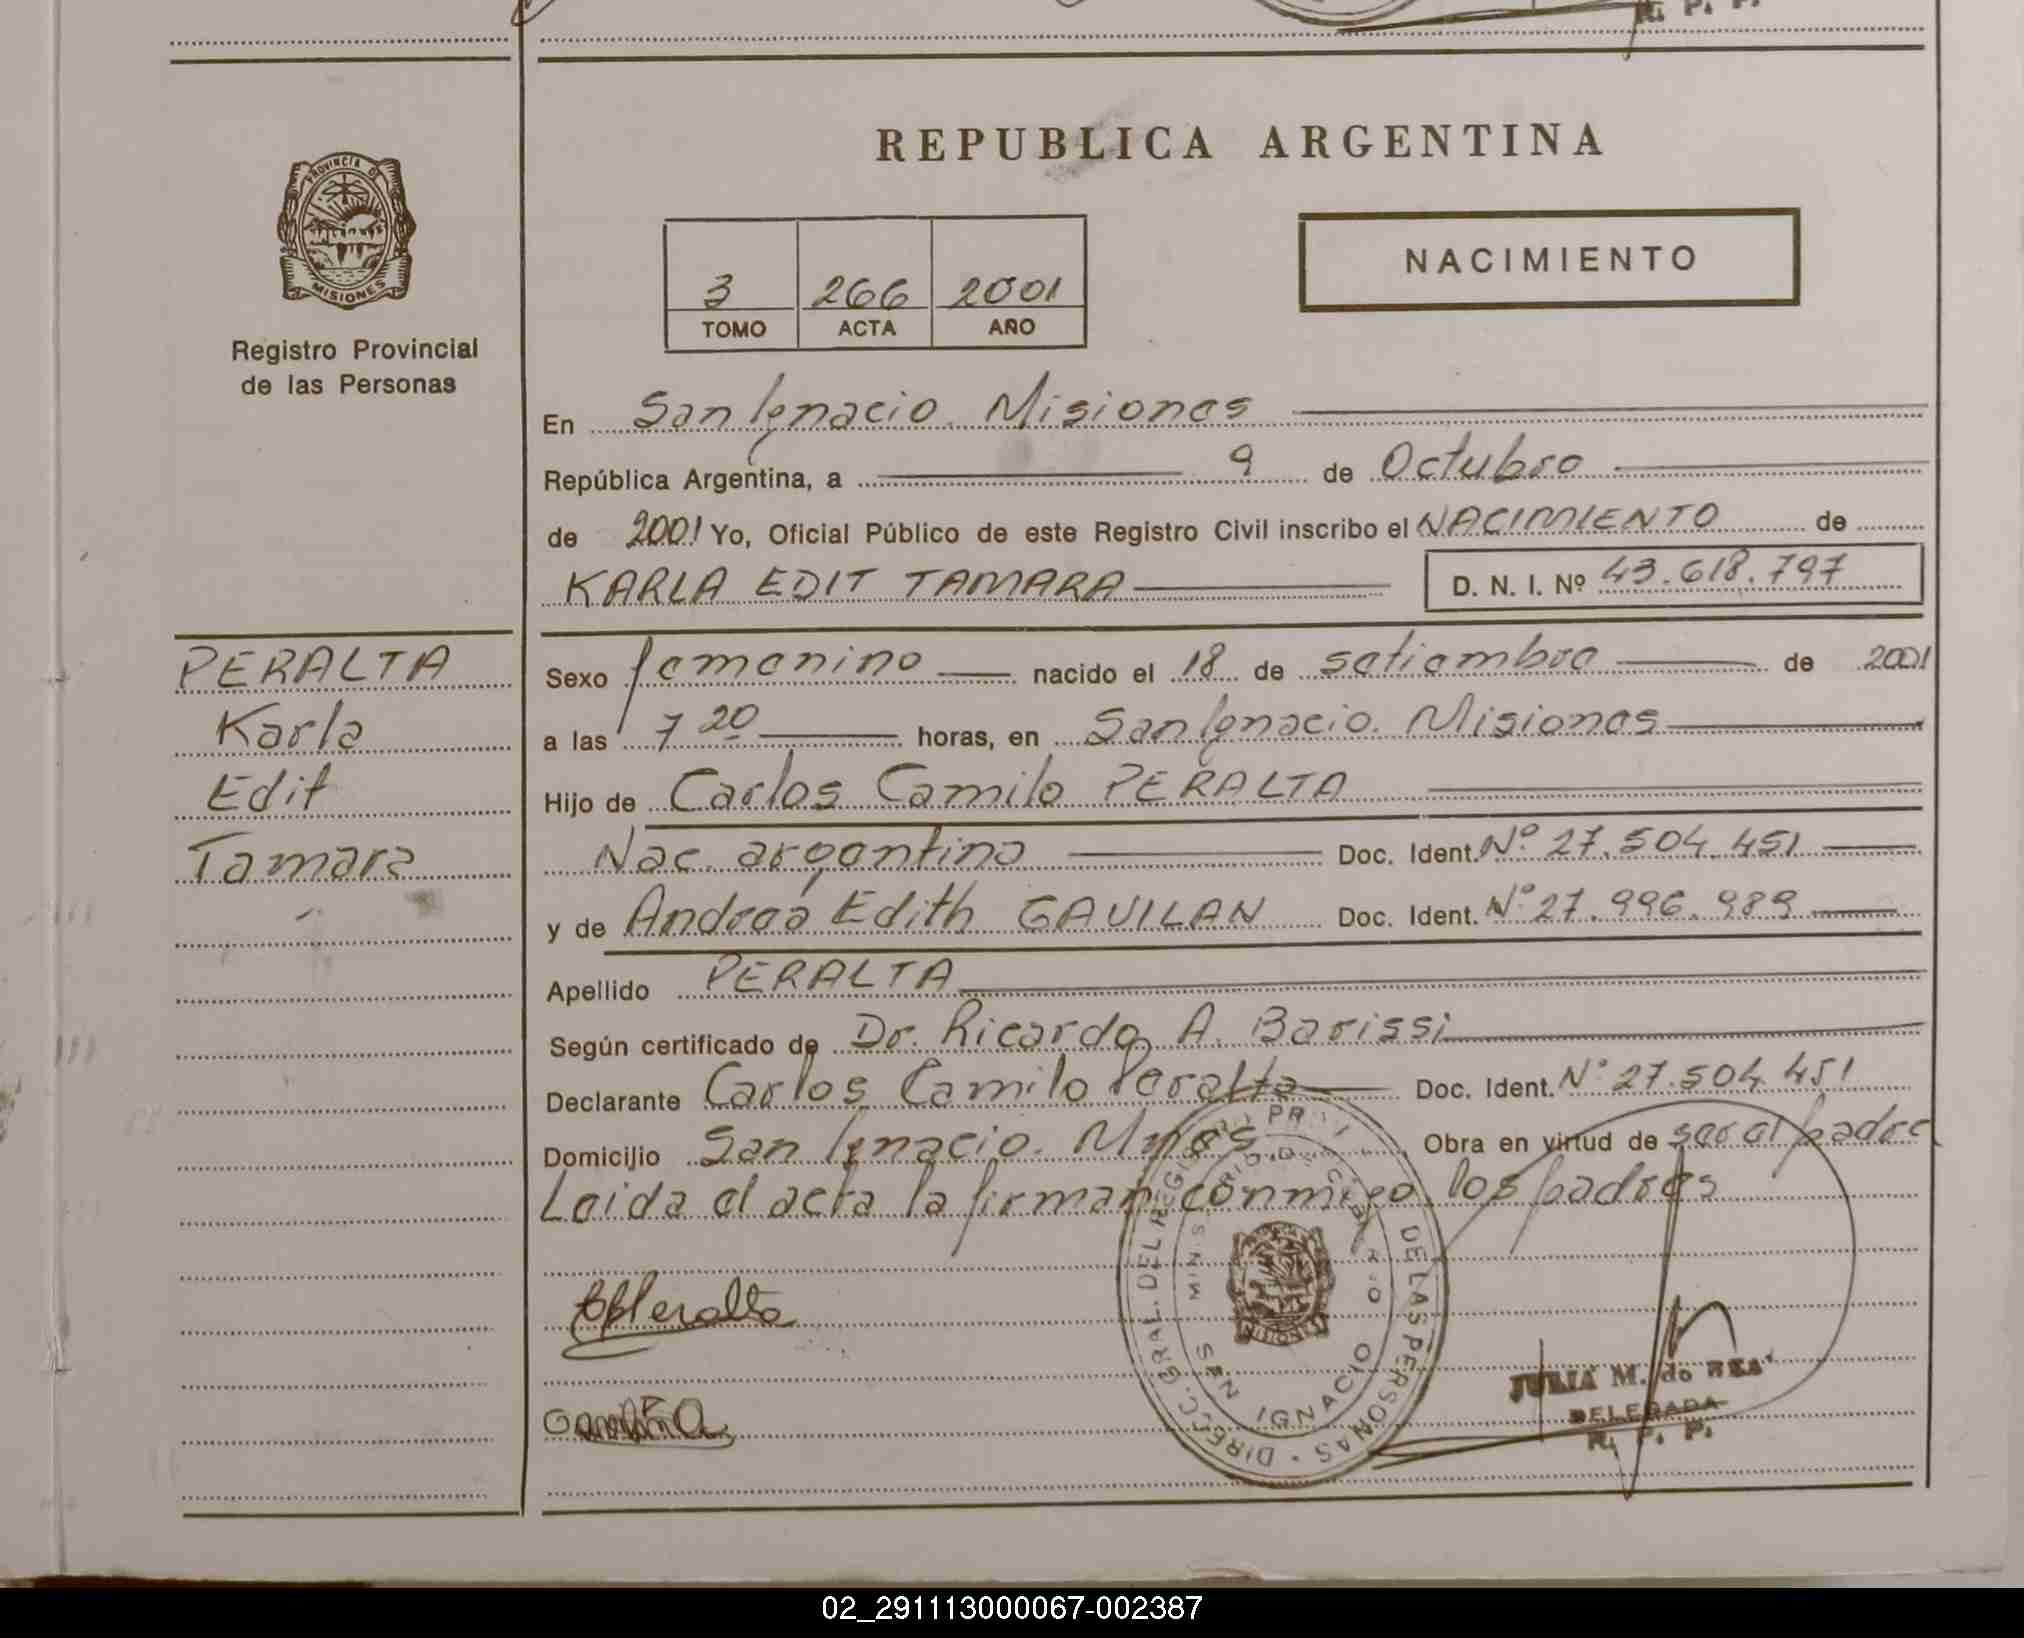 R. P. P.
REPUBLICA ARGENTINA
PROVINCIA DE
MISIONES
Registro Provincial
de las Personas
3 266 2001
TOMO ACTA AÑO
NACIMIENTO
En San Ignacio. Misiones
República Argentina, a 9 de Octubre
de 2001 Yo, Oficial Público de este Registro Civil inscribo el NACIMIENTO de
KARLA EDIT TAMARA D. N. I. Nº 43.618.797
PERALTA
Karla
Edit
Tamara
Sexo femenino nacido el 18 de setiembre de 2001
a las 7 20 horas, en San Ignacio. Misiones
Hijo de Carlos Camilo PERALTA
Nac. argentino Doc. Ident. Nº 27.504.451
y de Andrea Edith GAVILAN Doc. Ident. Nº 27.996.989
Apellido PERALTA
Según certificado de Dr. Ricardo A. Barissi
Declarante Carlos Camilo Peralta Doc. Ident. Nº 27.504.451
Domicilio San Ignacio. Mnes Obra en virtud de ser el padre
Leida el acta la firman conmigo los padres
DIRECC. GRAL. DEL REGISTRO PROV. DE LAS PERSONAS
IGNACIO
MISIONES
Peralta
JULIA M. de
DELEGADA
R. P. P.
02_291113000067-002387